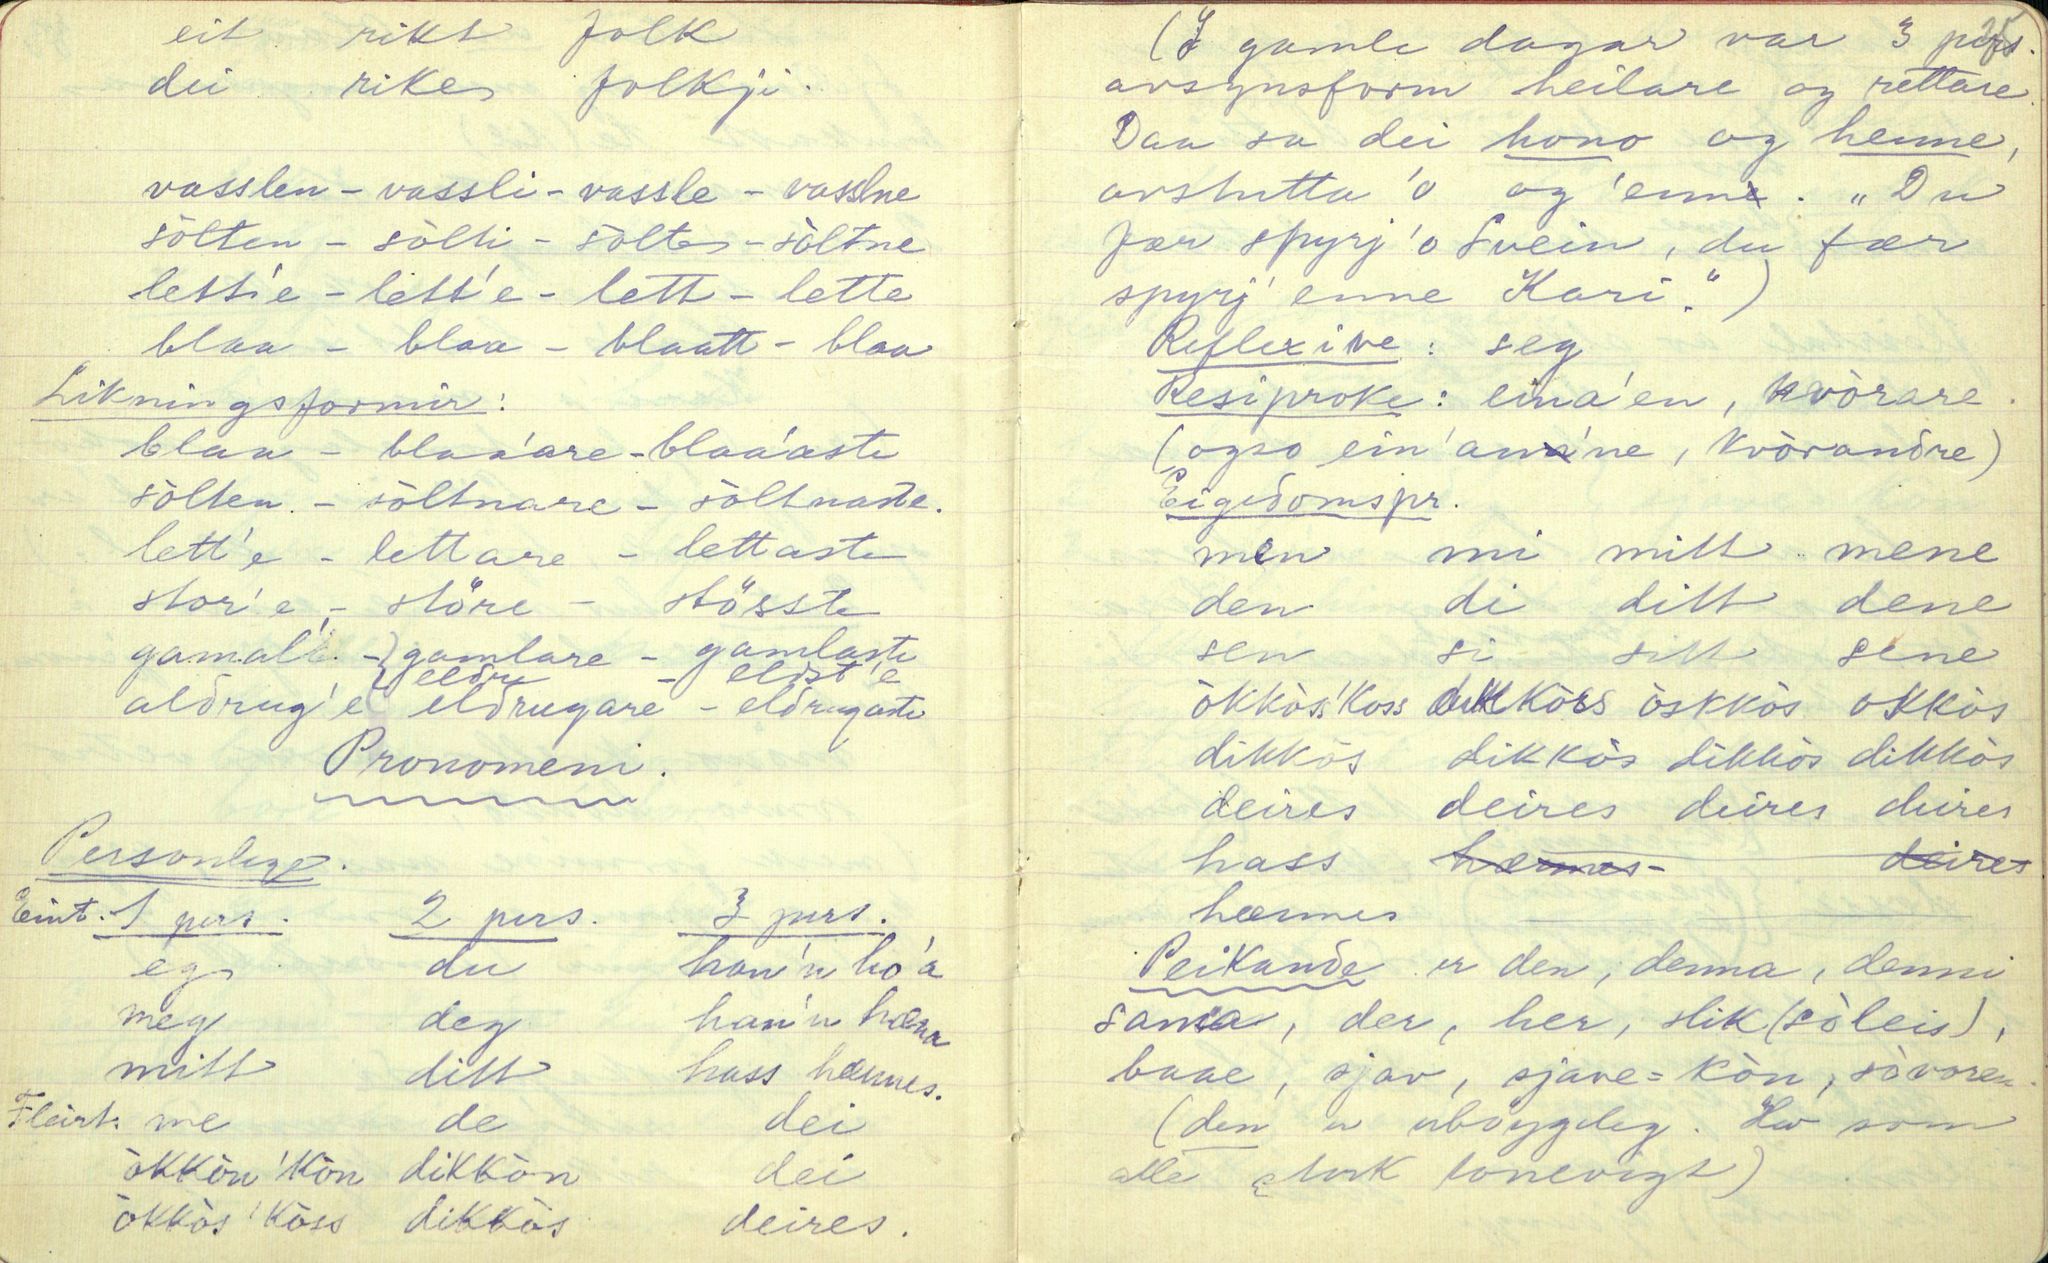 eit rikt folk
dei rike folkji.
vasslen - vassli - vassle - vasslne
sòlten - sòlti - sòlte - sòltne
lett'e - lett'e - lett - lette
blaa - blaa - blaatt - blaa
Likningsformir:
blaa - blaa'are - blaa'aste
sòlten - sòltnare - sòltnaste.
lett'e - lettare - lettaste
stor'e - störe - störste
gamall - gamlare - gamlaste
eldre - eldst'e
aldrug'e eldrugare - eldrugaste
Pronomeni.
Personlege.
Eint. 1 pers. 2 pers. 3 pers.
eg du han'n ho'a
meg deg han'n hæna
mitt ditt hass hænnes.
Fleirt: me de dei
òkkòn 'kòn dikkòn dei
òkkòs 'kòss dikkòs deires.
25
(I gamle dagar var 3 pers.
avsynsform heilare og rettare.
Daa sa dei hono og henne,
avstutta 'o og 'enne. "Du
fær spyrj 'o Svein, du fær
spyrj 'enne Kari.")
Reflexive: seg
Resiproke: eina'en, kvòrare.
(ogso ein'an'ne, kvòrandre)
Eigedomspr.
men mi mitt mene
den di ditt dene
sen si sitt sene
òkkòs 'koss òkkòs òkkòs
dikkòs dikkòs dikkòs dikkòs
deires deires deires deires
hass hænnes deires
hænnes
Peikande er den, denna, denni
sama, der, her, slik (sòleis),
baae, sjav, sjave=kòn, sòvoren.
(den er uböygeleg. som
alle sterk tonevigt)